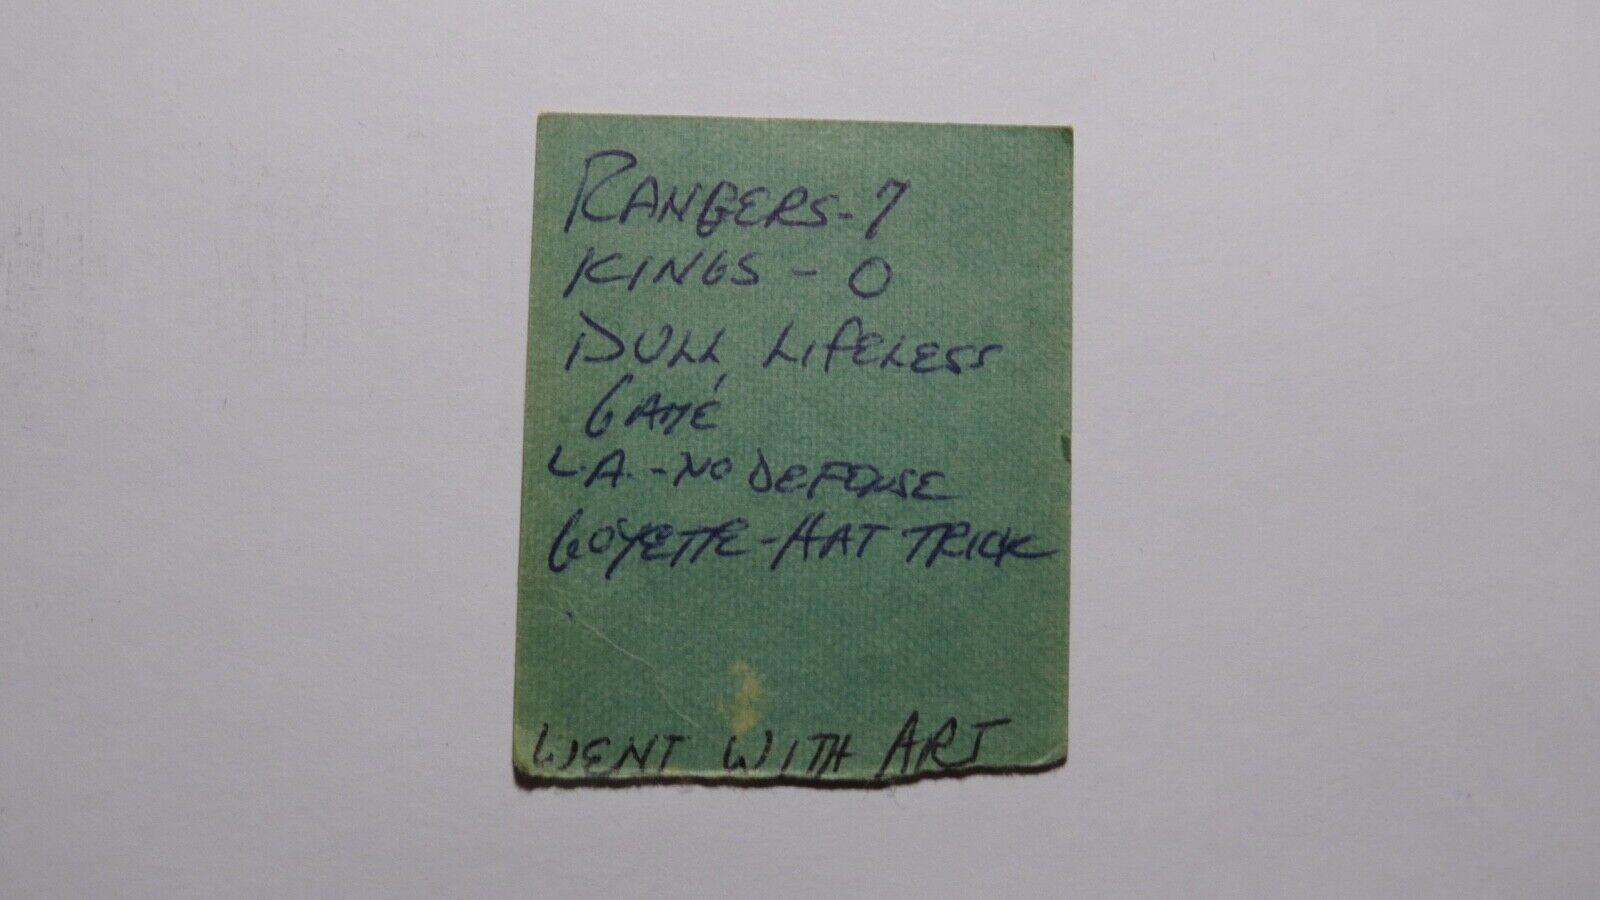 RANGERS-7
KINGS - 0
DULL, LIFELESS
GAME
L.A. - NO DEFENSE
GOYETTE - HAT TRICK
WENT WITH ART